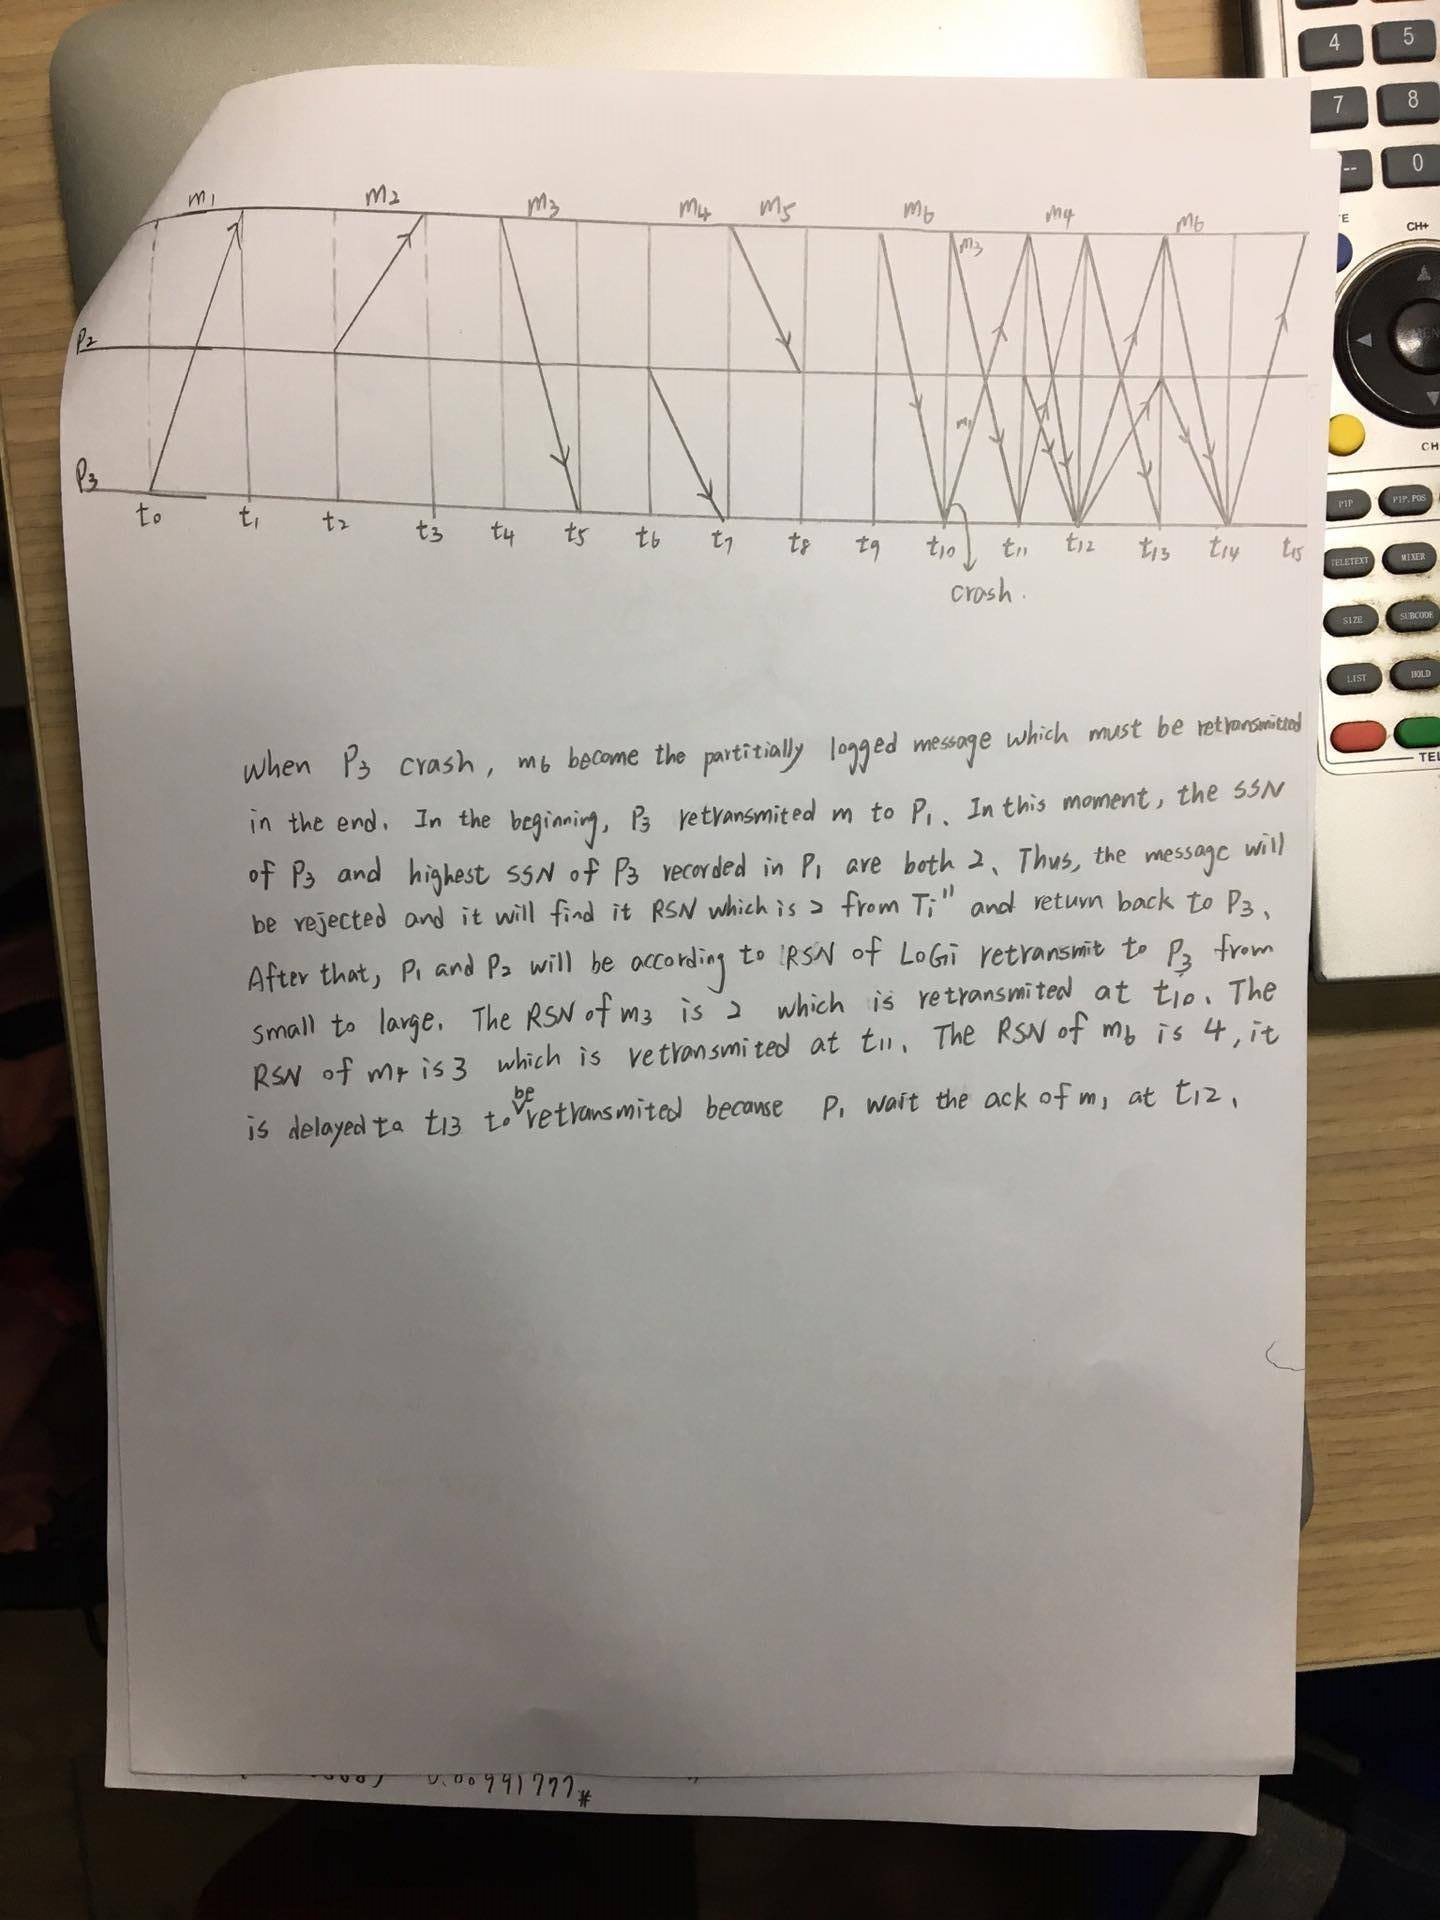 m1 m2 m3 m4 m5 m6 m3 m4 m6
P2
m1
P3
t0 t1 t2 t3 t4 t5 t6 t7 t8 t9 t10 t11 t12 t13 t14 t15
crash.
When P3 crash, m6 become the partitially logged message which must be retransmitted
in the end. In the beginning, P3 retransmited m to P1. In this moment, the SSN
of P3 and highest SSN of P3 recorded in P1 are both 2. Thus, the message will
be rejected and it will find it RSN which is 2 from Ti" and return back to P3.
After that, P1 and P2 will be according to RSN of LOGi retransmit to P3 from
small to large. The RSN of m3 is 2 which is retransmited at t10. The
RSN of m4 is 3 which is retransmited at t11. The RSN of m6 is 4, it
is delayed to t13 to be retransmited because P1 wait the ack of m1 at t12.
4 5
7 8
-- 0
CH+
MENU
CH
PIP PIP.POS
TELETEXT MIXER
SIZE SUBCODE
LIST HOLD
TEL